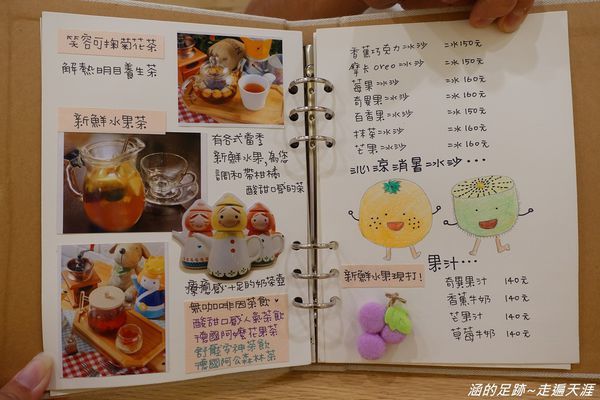 笑容可掬菊花茶
解熱明目養生茶
新鮮水果茶
有各式當季
新鮮水果,為您
調和帶柑橘
酸甜口感的茶
療癒感十足的奶茶壺
無咖啡因茶飲
酸甜口感人氣茶飲
德國阿嬤花果茶
舒壓安神茶飲
德國阿公森林茶
香蕉巧克力冰沙 冰150元
摩卡oreo冰沙 冰150元
莓果冰沙 冰160元
奇異果冰沙 冰160元
百香果冰沙 冰160元
抹茶冰沙 冰160元
芒果冰沙 冰160元
沁涼消暑冰沙...
果汁...
新鮮水果現打!
奇異果汁 140元
香蕉牛奶 140元
芒果汁 140元
草莓牛奶 140元
涵的足跡~走遍天涯